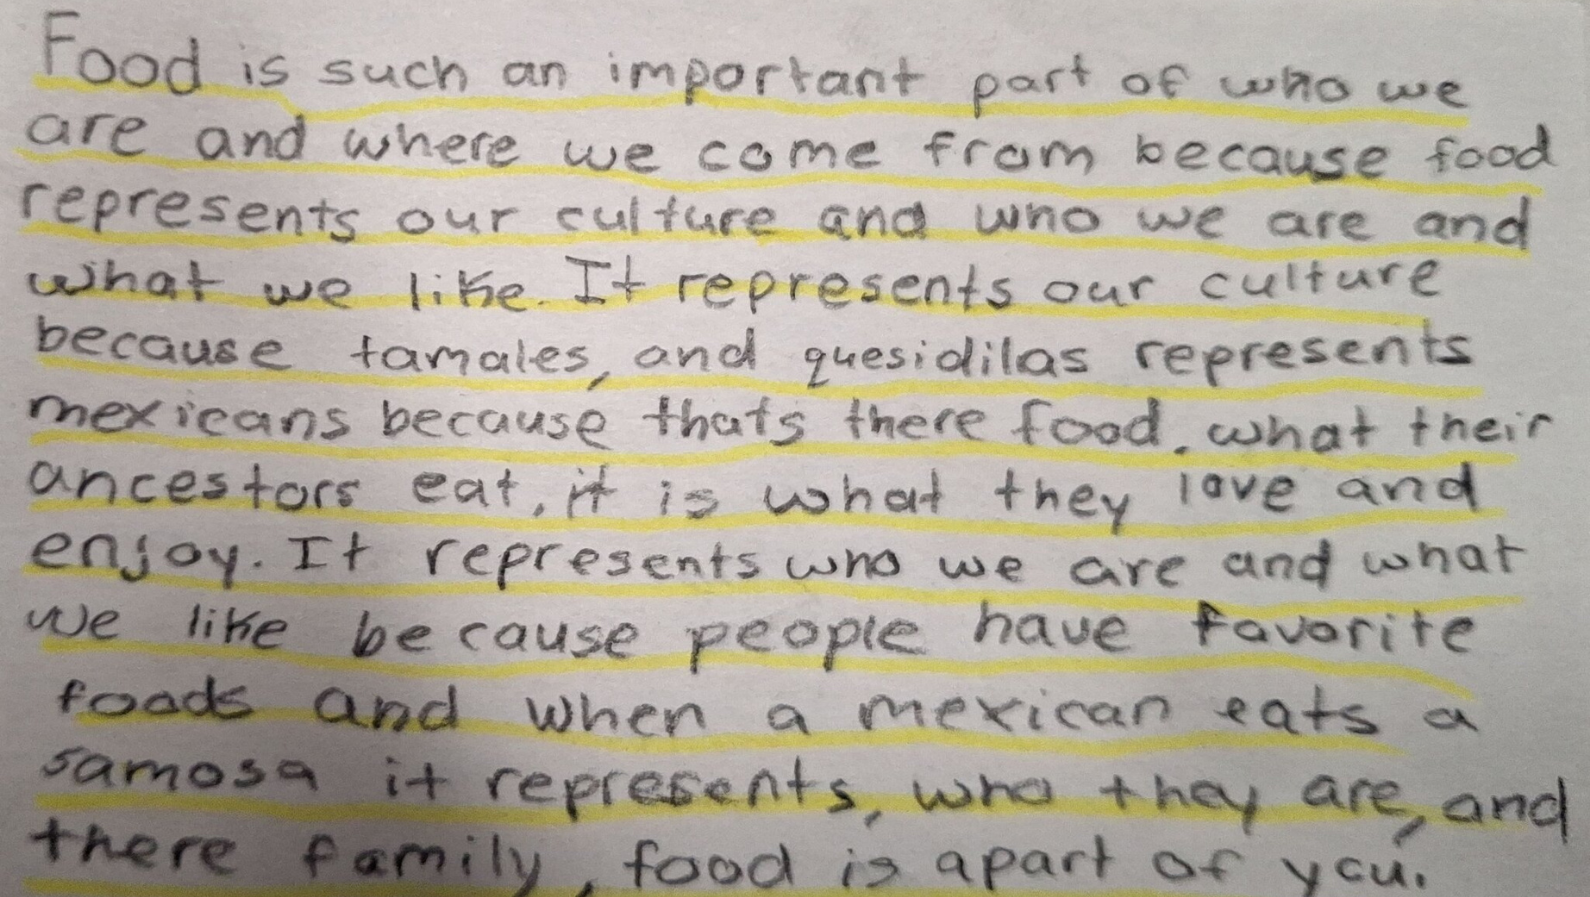 Food is such an important part of who we
are and where we come from because food
represents our culture and who we are and
what we like. It represents our culture
because tamales, and quesidilas represents
mexicans because thats there food, what their
ancestors eat, it is what they love and
enjoy. It represents who we are and what
we like because people have favorite
foods and when a mexican eats a
samosa it represents, who they are, and
there family, food is apart of you.